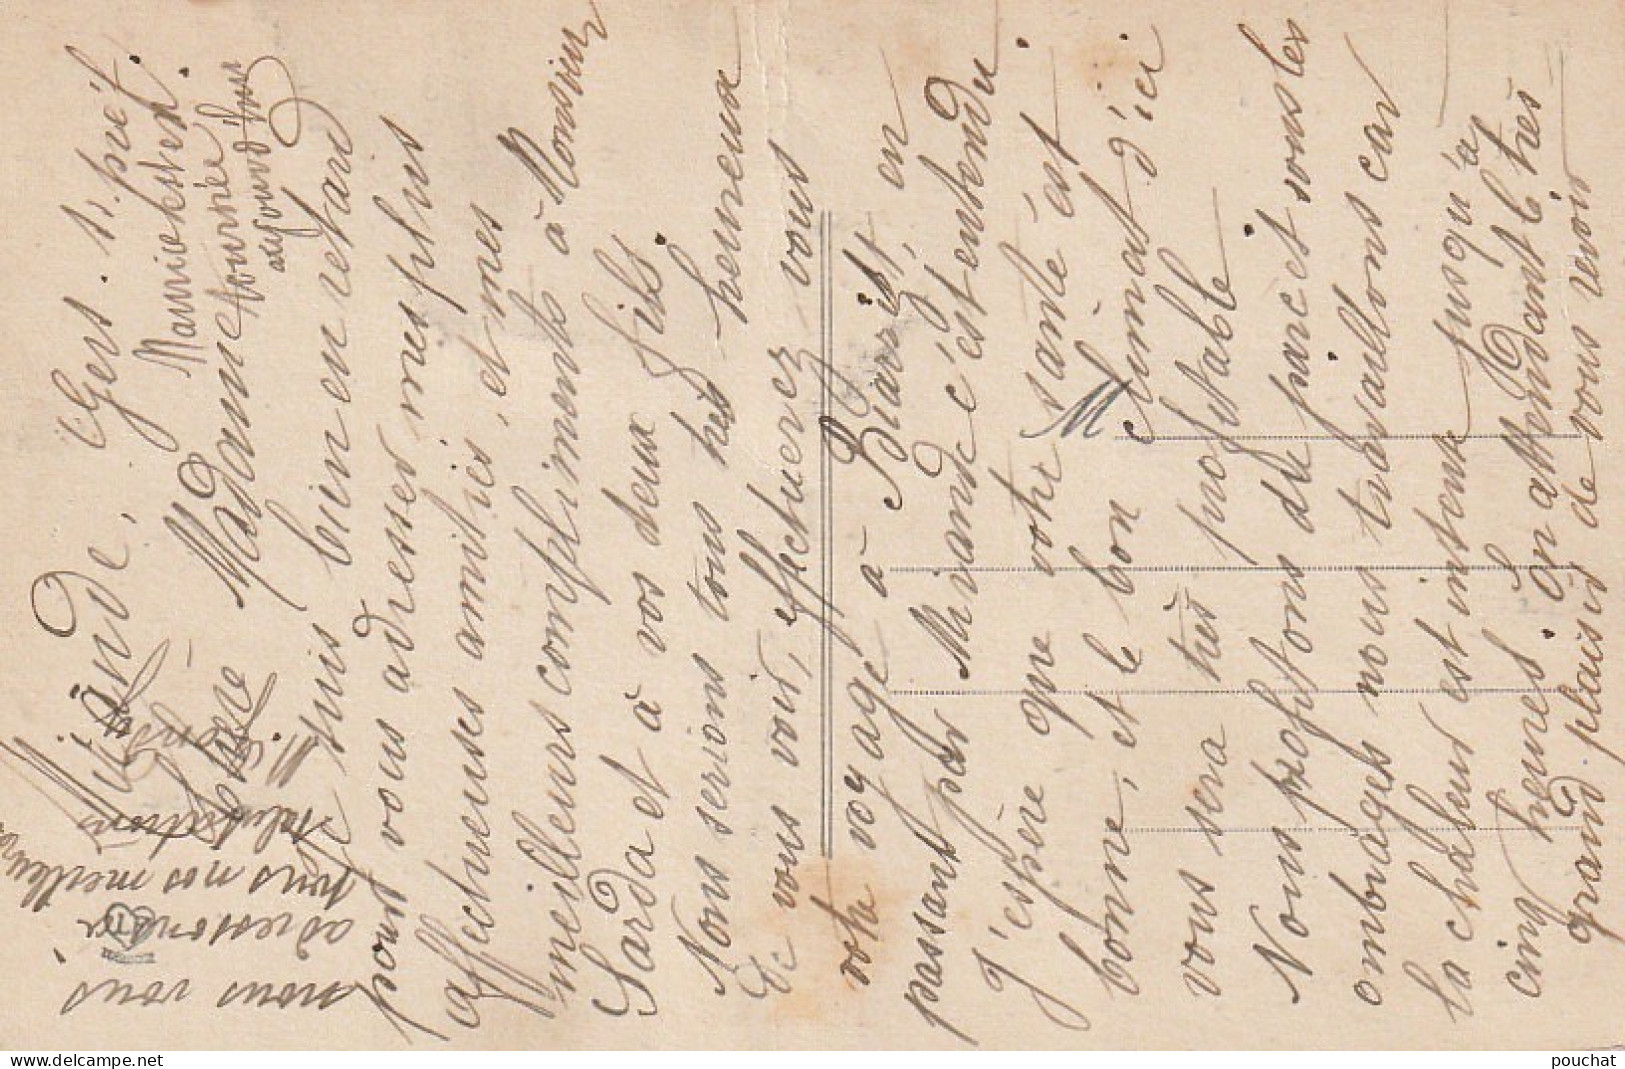 Mirande, Gers. S. préf.
Chère Madame
Je suis bien en retard
pour vous adresser mes plus
affectueuses amitiés, et mes
meilleurs compliments à Monsieur
Sarda et à vos deux fils.
Nous serions tous très heureux
de vous voir, effectuerez vous
votre voyage à Biarritz, en
passant par Mirande c'est entendu.
J'espère que votre santé est
bonne, et le bon climat d'ici
vous sera très profitable
Nous profitons du parc et sous les
ombrages nous travaillons car
la chaleur est intense jusqu'à
cinq heures. En attendant le très
grand plaisir de vous revoir
nous vous
adressons
tous nos meilleurs
M
aujourd'hui
pouchat
delcampe.net